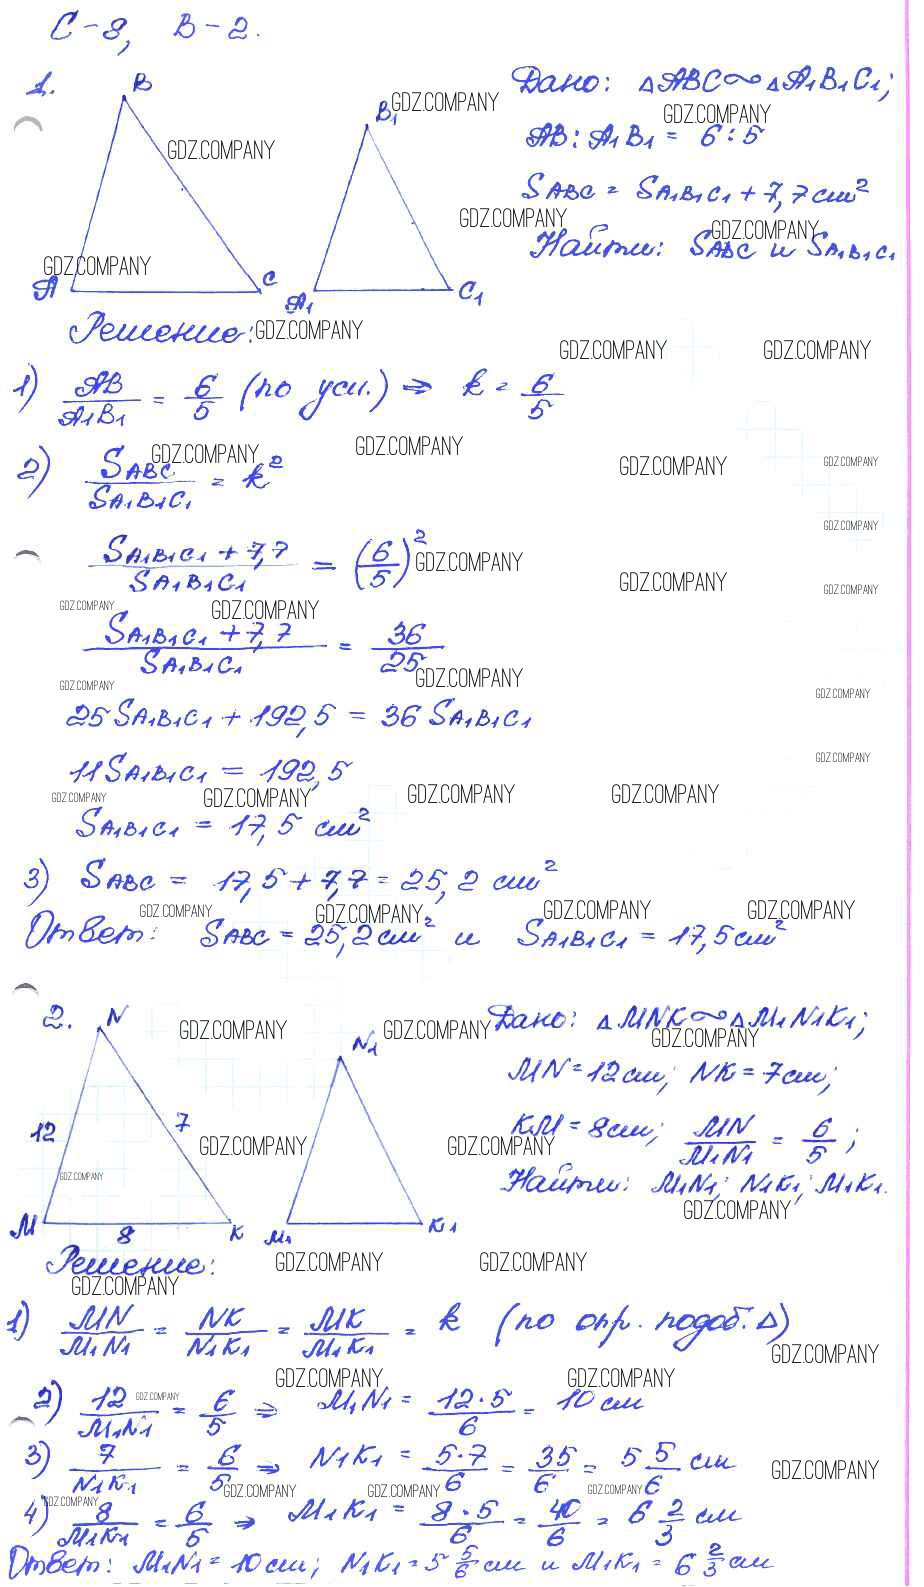 С-8, В-2.
1.
B
A
C
B₁
A₁
C₁
Дано: △ABC∾△A₁B₁C₁;
AB:A₁B₁ = 6:5
SABC = SA₁B₁C₁ + 7,7 см²
Найти: SABC и SA₁B₁C₁
Решение:
1) AB/A₁B₁ = 6/5 (по усл.) ⇒ k = 6/5
2) SABC/SA₁B₁C₁ = k²
(SA₁B₁C₁ + 7,7)/SA₁B₁C₁ = (6/5)²
(SA₁B₁C₁ + 7,7)/SA₁B₁C₁ = 36/25
25SA₁B₁C₁ + 192,5 = 36 SA₁B₁C₁
11SA₁B₁C₁ = 192,5
SA₁B₁C₁ = 17,5 см²
3) SABC = 17,5 + 7,7 = 25,2 см²
Ответ: SABC = 25,2 см² и SA₁B₁C₁ = 17,5 см²
2.
N
12
7
M
8
K
N₁
M₁
K₁
Дано: △MNK∾△M₁N₁K₁;
MN = 12 см; NK = 7 см;
KM = 8 см; MN/M₁N₁ = 6/5;
Найти: M₁N₁; N₁K₁; M₁K₁.
Решение:
1) MN/M₁N₁ = NK/N₁K₁ = MK/M₁K₁ = k (по опр. подоб. △)
2) 12/M₁N₁ = 6/5 ⇒ M₁N₁ = 12·5/6 = 10 см
3) 7/N₁K₁ = 6/5 ⇒ N₁K₁ = 5·7/6 = 35/6 = 5 5/6 см
4) 8/M₁K₁ = 6/5 ⇒ M₁K₁ = 8·5/6 = 40/6 = 6 2/3 см
Ответ: M₁N₁ = 10 см; N₁K₁ = 5 5/6 см и M₁K₁ = 6 2/3 см
GDZ.COMPANY